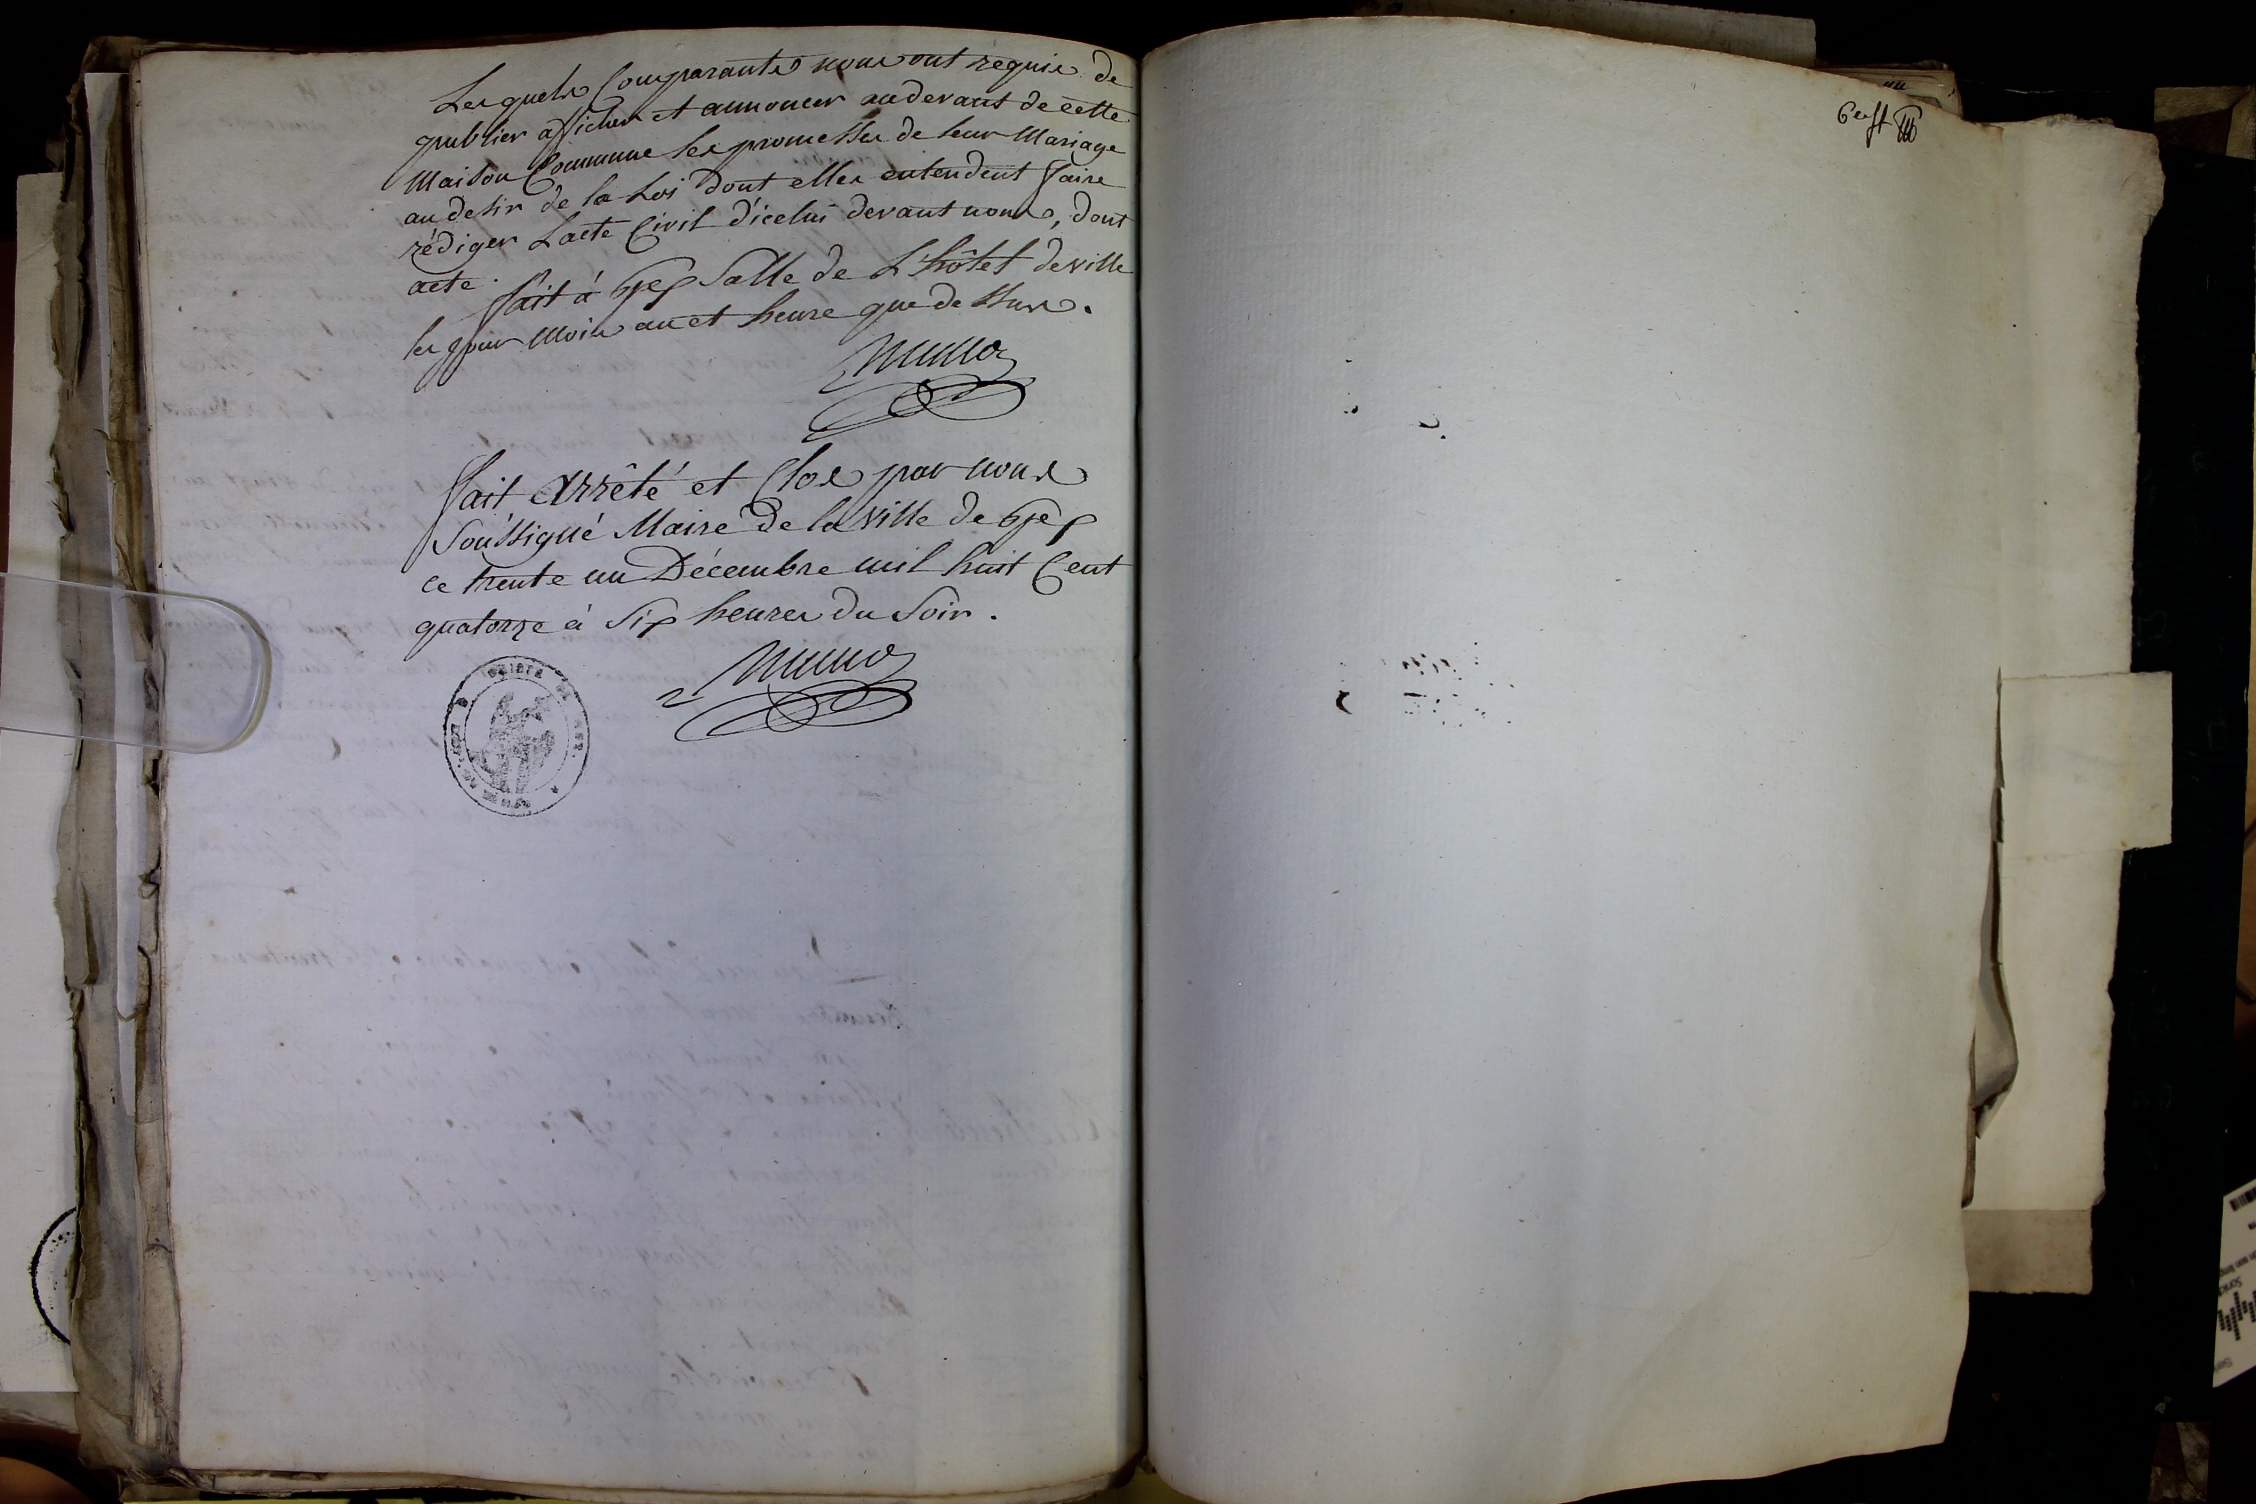 Les quels Comparants nous ont requis de
publier afficher et annoncer audevant de cette
Maison Commune les promesses de leur Mariage
au desir de la Loi dont elles entendent faire
rédiger L'acte Civil d'icelui devant nous, dont
acte.
fait à Gex Salle de L'hôtel de ville
les jour Mois an et heure que dessus.
fait Arrêté et Clos par nous
Soussigné Maire de la ville de Gex
ce trente un Décembre mil huit Cent
quatorze à Six heures du Soir.
MAIRIE DE GEX